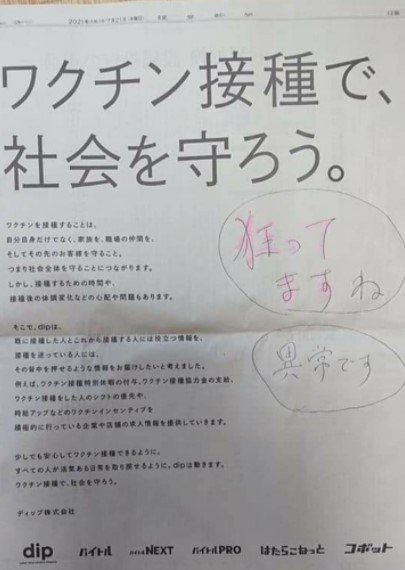 2021年 7月21日
ワクチン接種で、
社会を守ろう。
ワクチンを接種することは、
自分自身だけでなく、家族を、職場の仲間を、
そしてその先のお客様を守ること。
つまり社会全体を守ることにつながります。
しかし、接種するための時間や、
接種後の体調変化などの心配や問題もあります。
狂って
ますね
そこで、dipは、
既に接種した人とこれから接種する人には役立つ情報を、
接種を迷っている人には、
その背中を押せるような情報をお届けしたいと考えました。
例えば、ワクチン接種特別休暇の付与、ワクチン接種協力金の支給、
ワクチン接種をした人のシフトの優先や、
時給アップなどのワクチンインセンティブを
積極的に行っている企業や店舗の求人情報を提供していきます。
異常です
少しでも安心してワクチン接種できるように。
すべての人が活気ある日常を取り戻せるように。dipは動きます。
ワクチン接種で、社会を守ろう。
ディップ株式会社
dip バイトル NEXT バイトルPRO はたらこねっと コボット